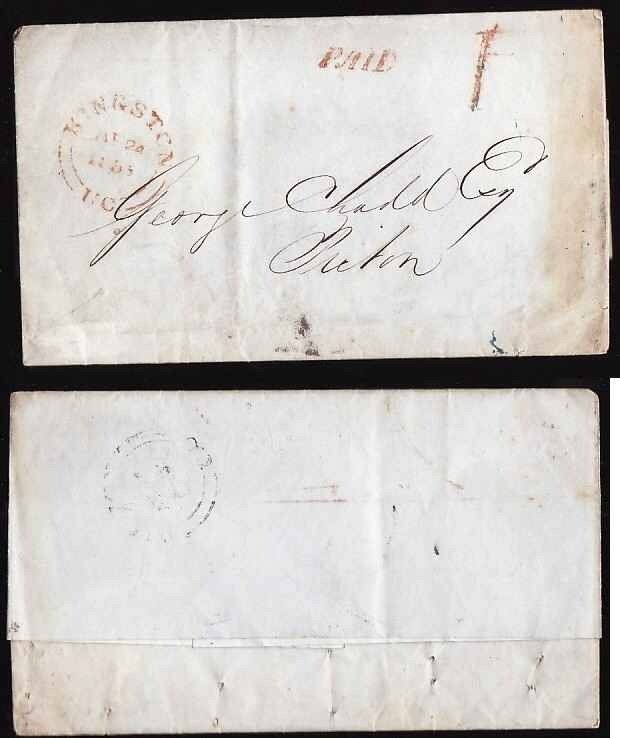 PAID
KINGSTON
24
U.C.
George Shadd Esq
Picton